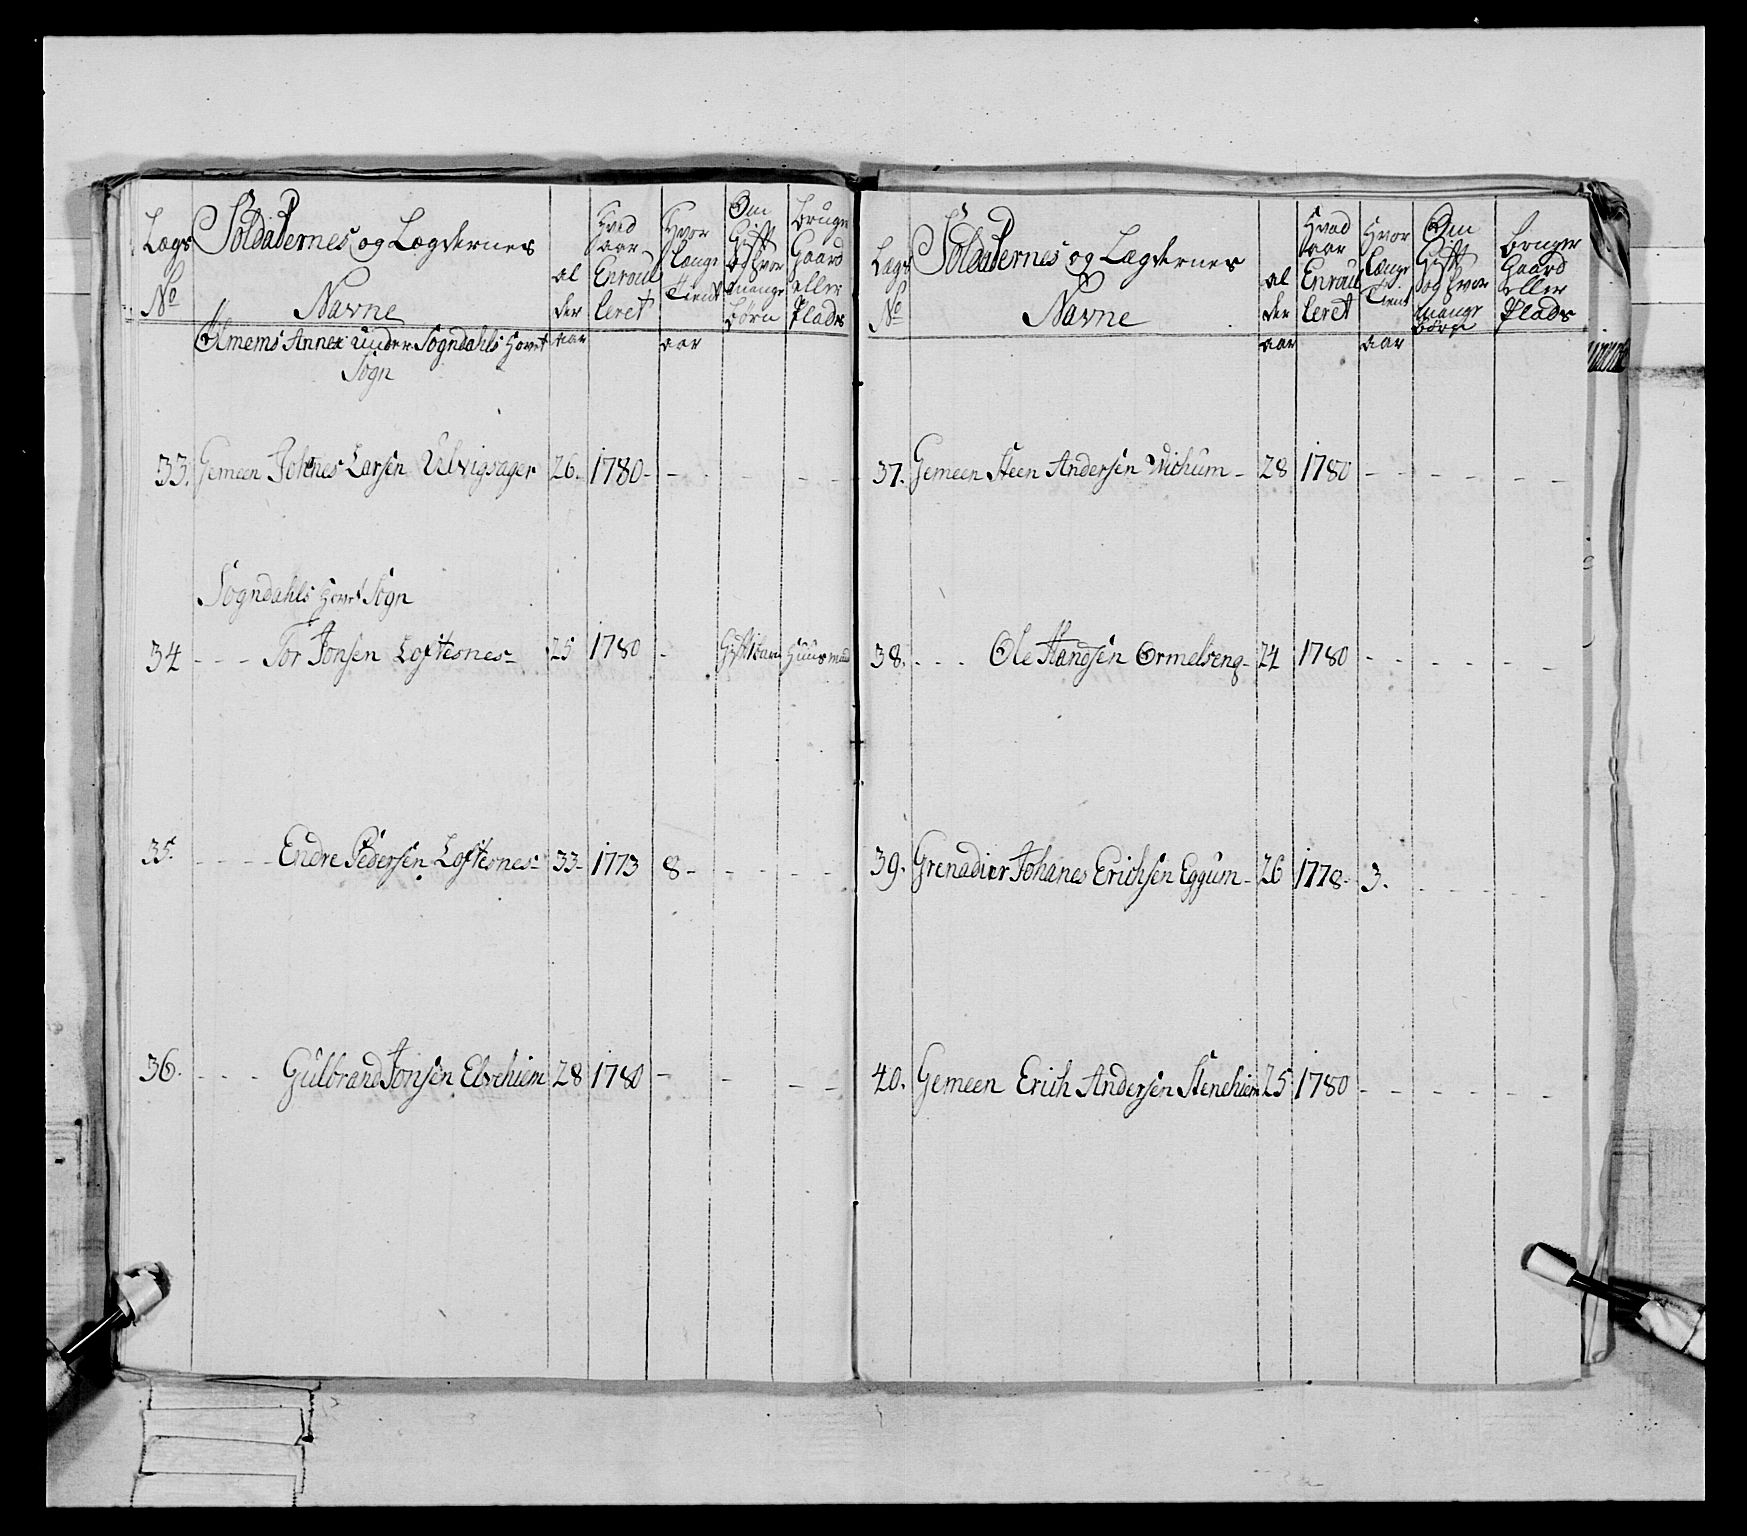 Lægs No
Soldaternes og Lægdernes Navne
al der
Hvad aar Enroulleret
Hvor længe Tient
Om Gift og hvor mange børn
bruger Gaard eller Plads
Annex under Sogndahls Hovet Sogn
aar aar
33. Gemeen Johnes Larsen Ulvigsager 26. 1780 - - - - -
Sogndahls Hovet Sogn
34 - - - Tor Jonsen Loftesnes - 25 1780 - Gift 1 barn Huusmand
35. - - - - Endre Pedersen Loftesnes - 33 - 1773 8 - - - - -
36. - - - Gulbrand Jonsen Elvehiem 28 1780 - - - -
Lægs No
Soldaternes og Lægdernes Navne
al der
Hvad aar Enroulleret
Hvor længe Tient
Om Gift og hvor mange børn
bruger Gaard eller Plads
aar aar
37. Gemeen Steen Andersen Wichum - 28 1780 - - - - - -
38. - - - Ole Hansen Ormelseng - 24 1780 - - - - - -
39. Grenadier Johanes Erichsen Eggum - 26 1778 - 3. - - - -
40. Gemeen Erich Andersen Stenehiem 25 1780 - - - - - -